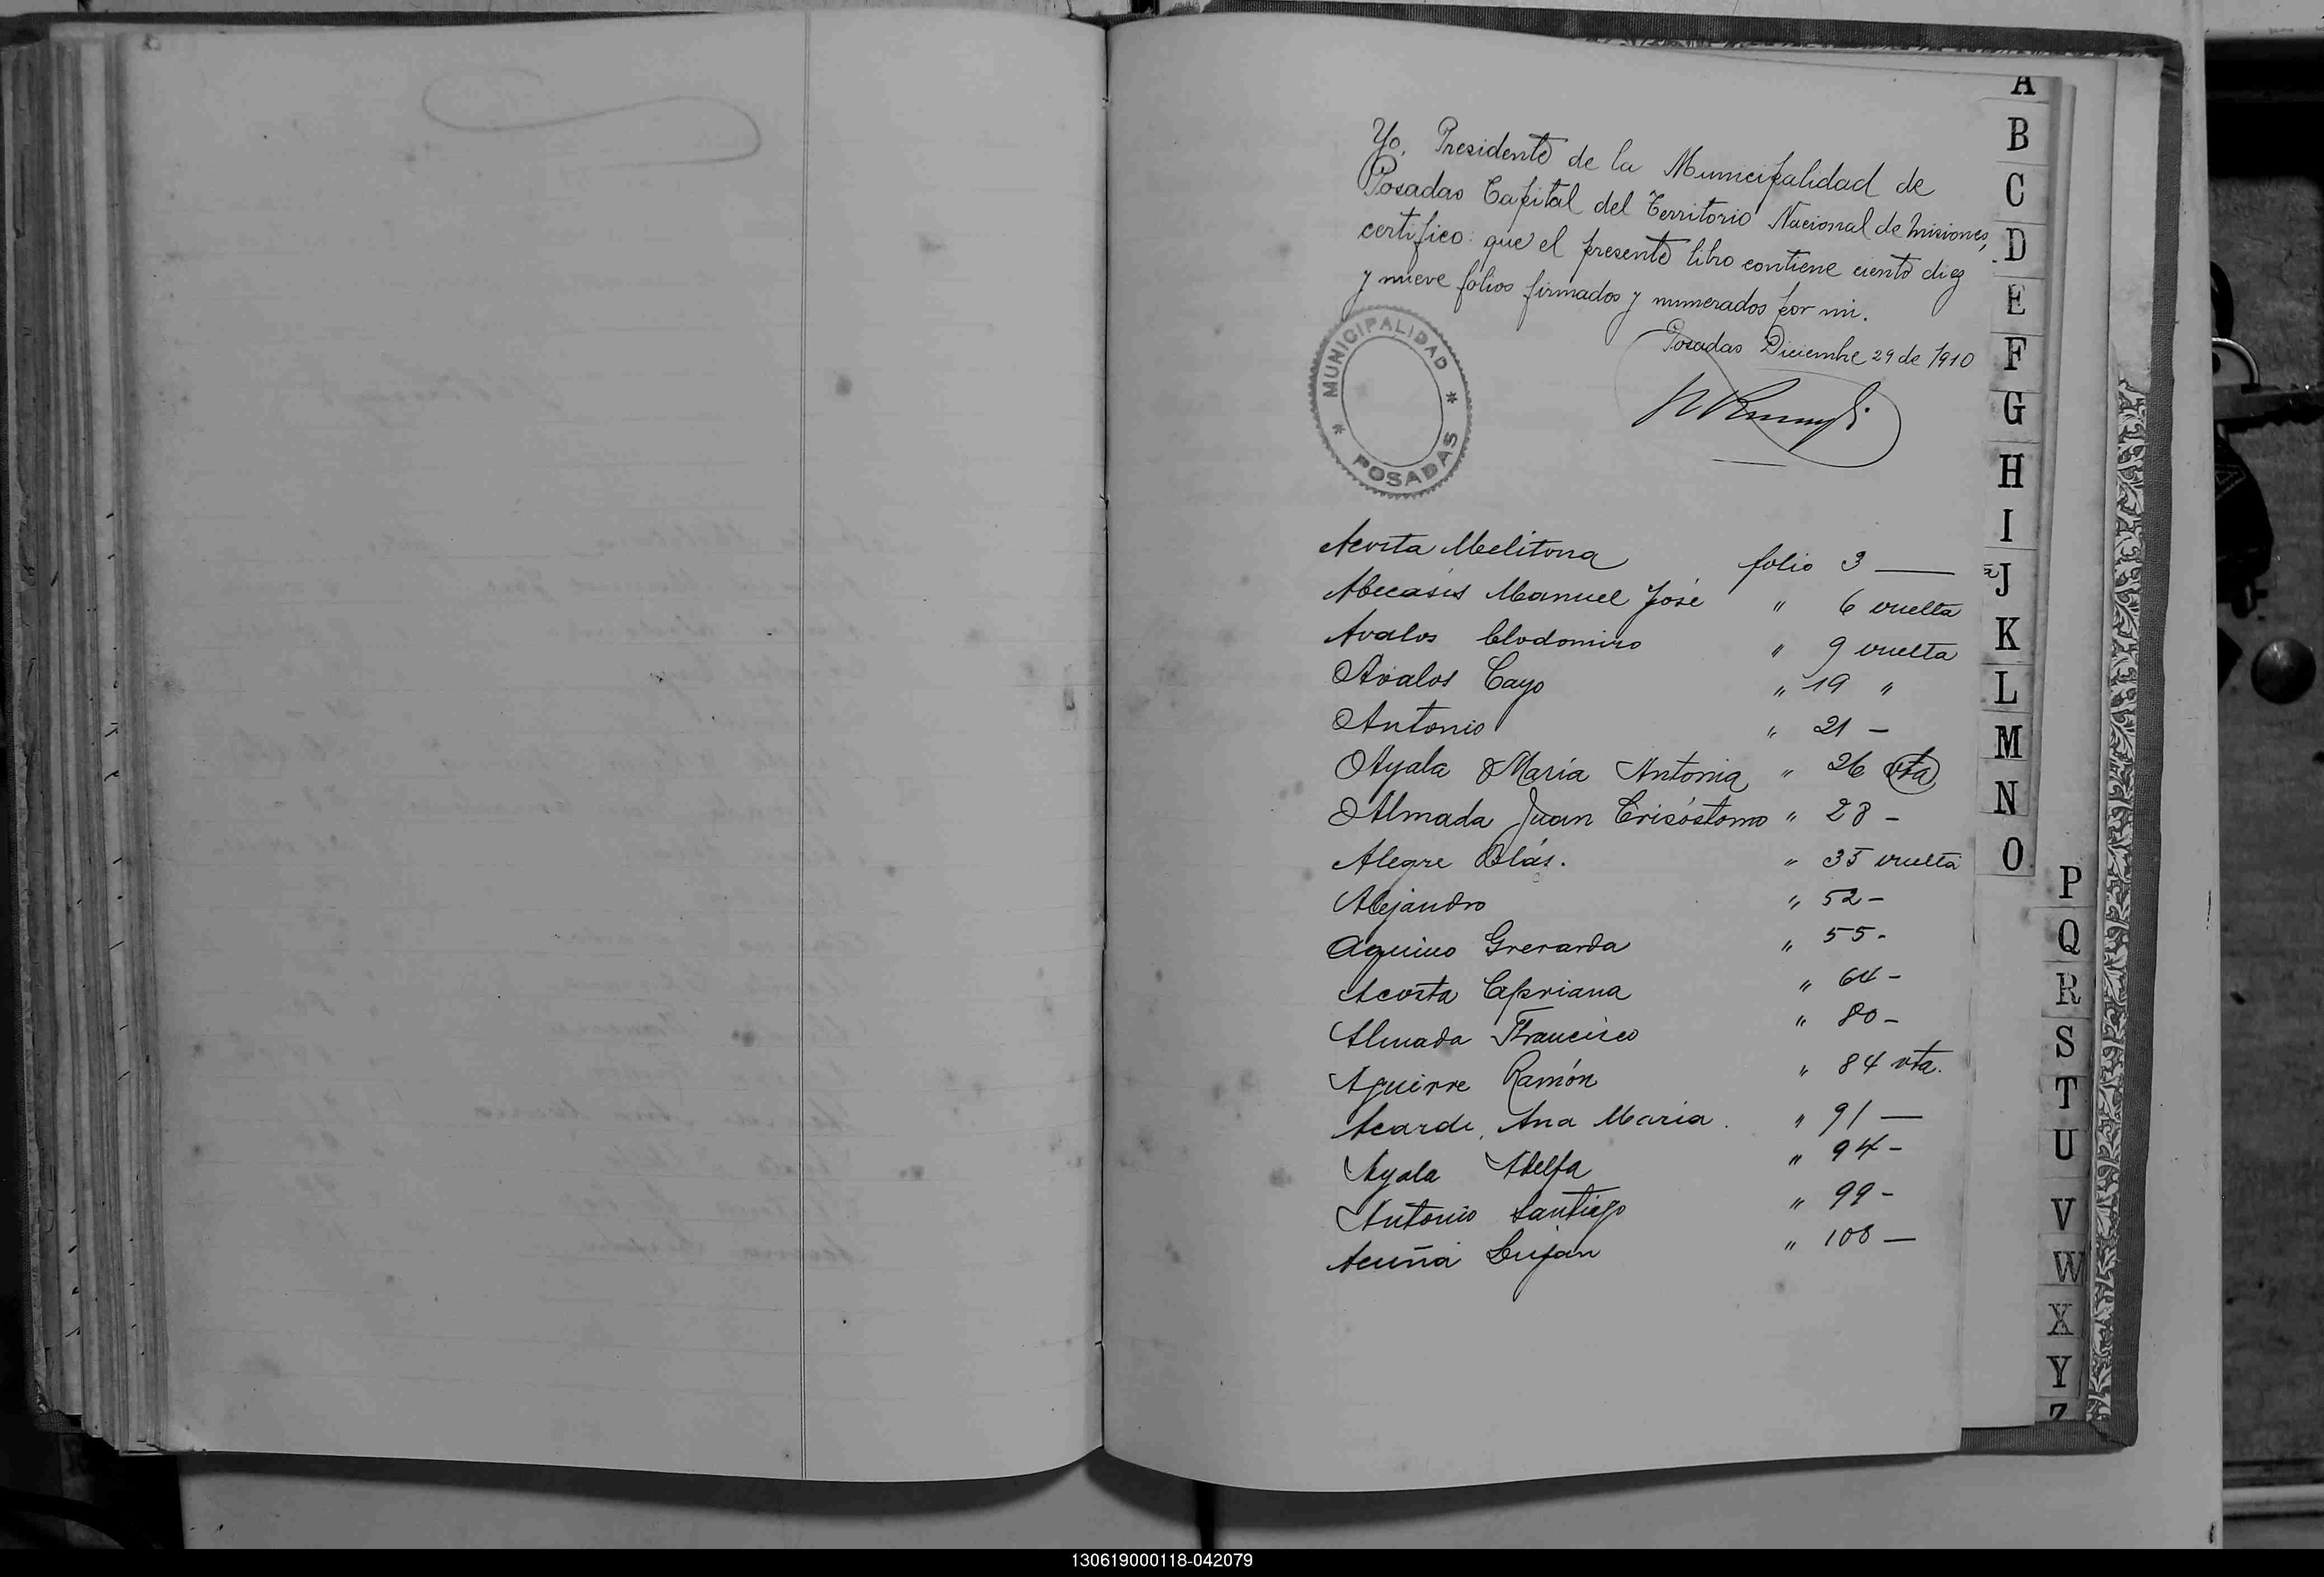 Yo, Presidente de la Municipalidad de
Posadas Capital del Territorio Nacional de Misiones,
certifico: que el presente libro contiene ciento diez
y nueve folios firmados y numerados por mi.
Posadas Diciembre 29 de 1910
MUNICIPALIDAD
* *
POSADAS
Acosta Melitona folio 3 —
Abecasis Manuel José " 6 vuelta
Avalos Clodomiro " 9 vuelta
Avalos Cayo " 19 "
Antonio " 21 -
Ayala Maria Antonia " 26 vta
Almada Juan Crisóstomo " 28 -
Alegre Blás. " 35 vuelta
Alejandro " 52 -
Aquino Gerarda " 55 -
Acosta Cipriana " 64 -
Almada Francisco " 80 -
Aguirre Ramón " 84 vta.
Acardi, Ana Maria. " 91 —
Ayala Adelfa " 94 -
Antonio Santiago " 99 -
Acuña Lujan " 108 —
A
B
C
D
E
F
G
H
I
J
K
L
M
N
O
P
Q
R
S
T
U
V
W
X
Y
Z
130619000118-042079